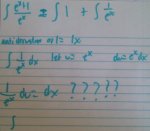 ∫ e^x+1 / e^x = ∫ 1 + ∫ 1/e^x
anti derivative of 1 = 1x
∫ 1/e^x dx let u = e^x du = e^x dx
1/e^x du = dx ? ? ? ? ?
∫